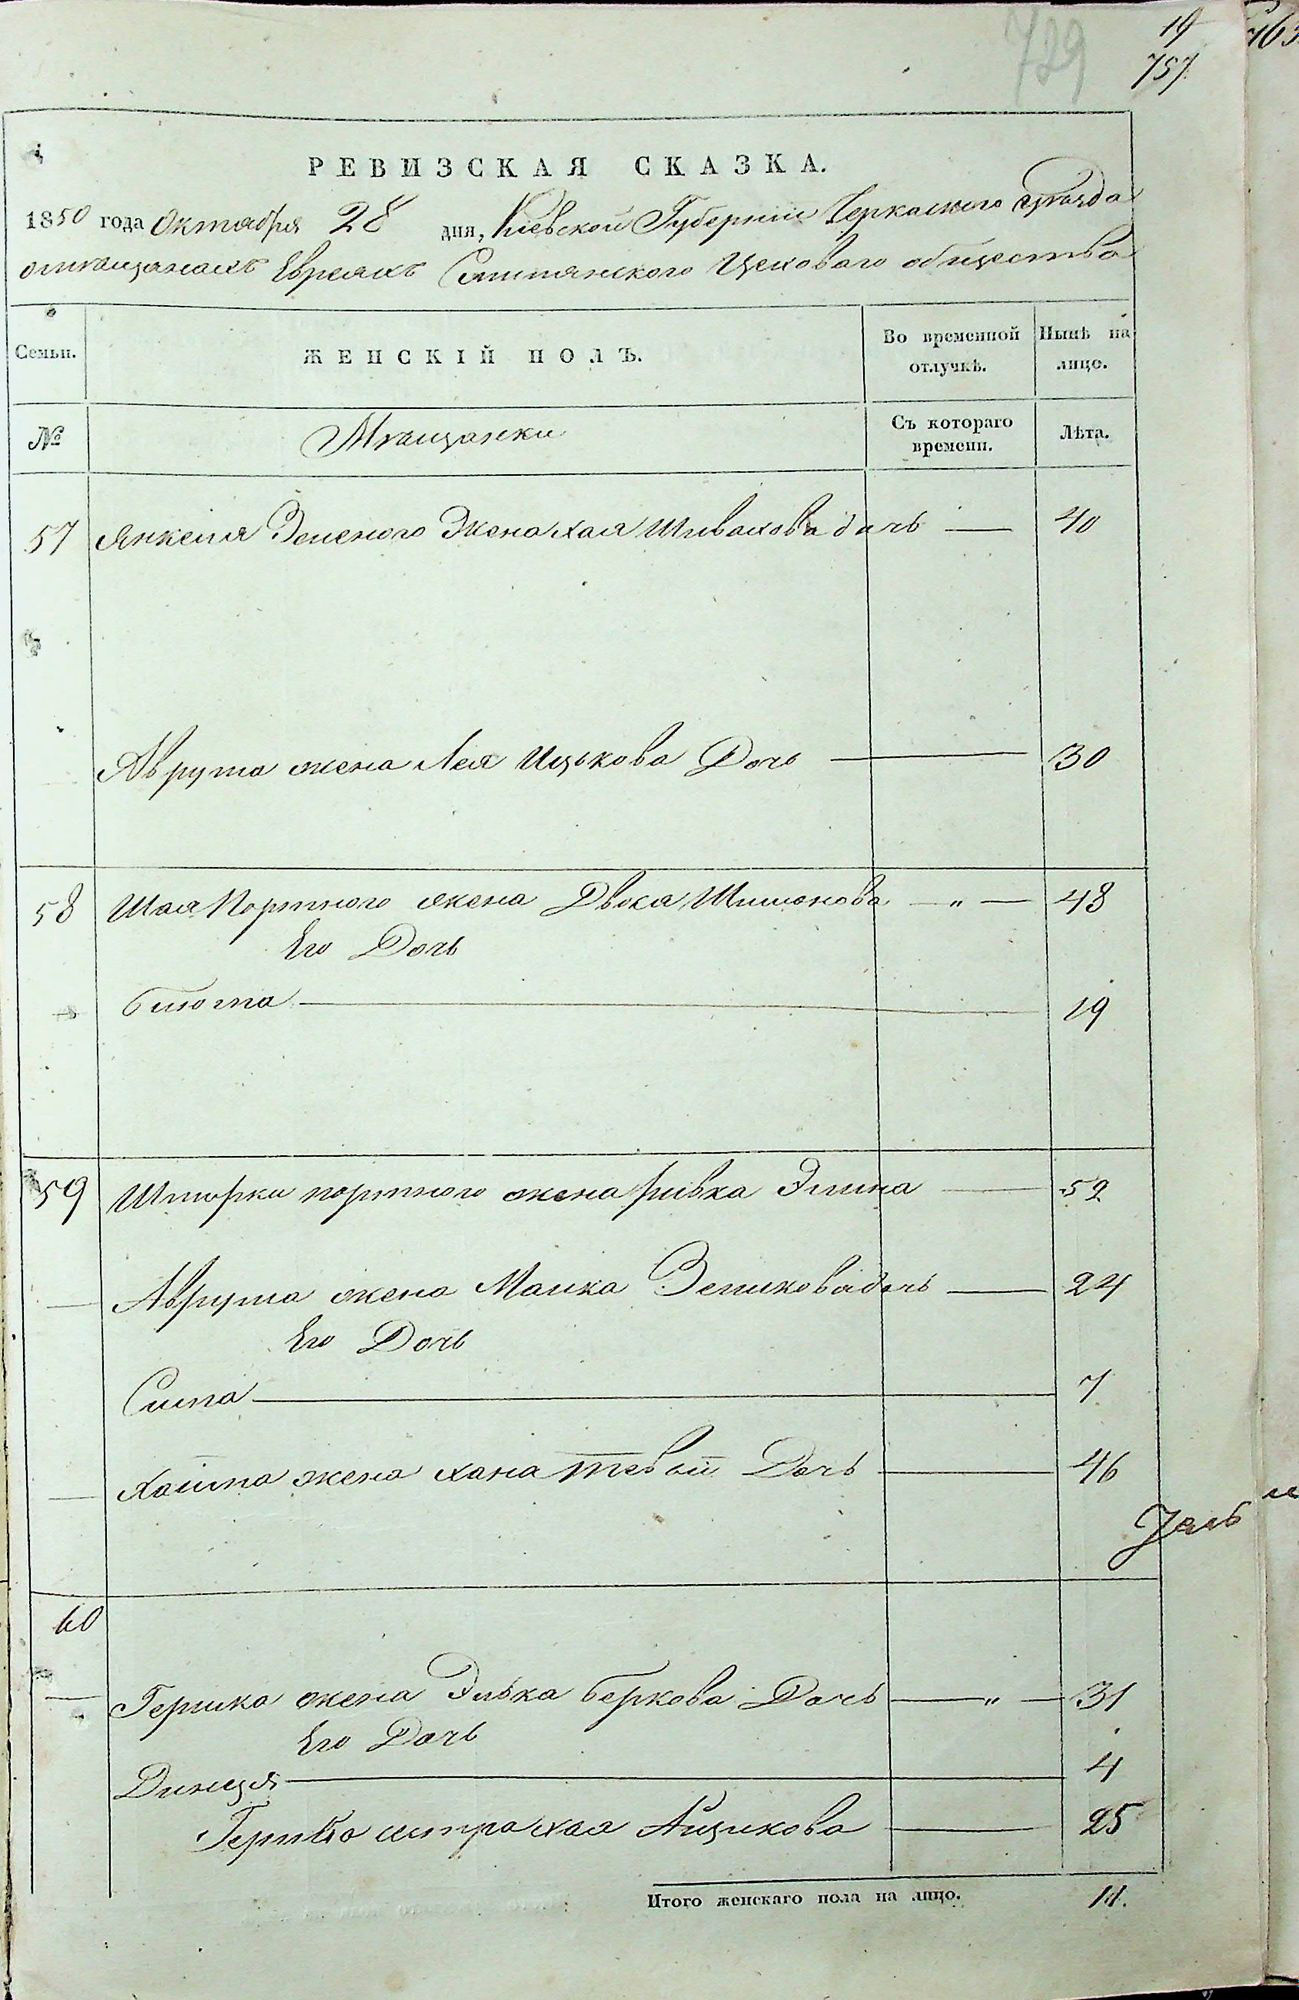 729
19
757
163
РЕВИЗСКАЯ СКАЗКА.
1850 года Октября 28 дня, Киевской Губернии Черкаского уѣзда
о мѣщанахъ Евреяхъ Смѣлянского Цеховаго общества
Семьи.
ЖЕНСКІЙ ПОЛЪ.
Во временной отлучкѣ.
Нынѣ на лицо.
№
Мѣщанки
Съ котораго времени.
Лѣта.
57 Янкеля Зеленого Жена Хая Шивахова дочь — 40
Аврума жена Лея Ицькова Дочь — 30
58 Шая Портного жена Двося Шимонова — „ — 48
Его Дочь
Блюма — 19
59 Шморки портного жена Ривка Элина — 52
Аврума жена Малка Зеликова дочь — 24
Его Дочь
Сима — 7
Хаима жена Хана Тевой Дочь — 46
60
Гершка жена Элька Беркова Дочь — „ — 31
Его Дочь
Динця — 4
Гершка сестра Хая Айзикова — 25
Итого женскаго пола на лицо. 11.